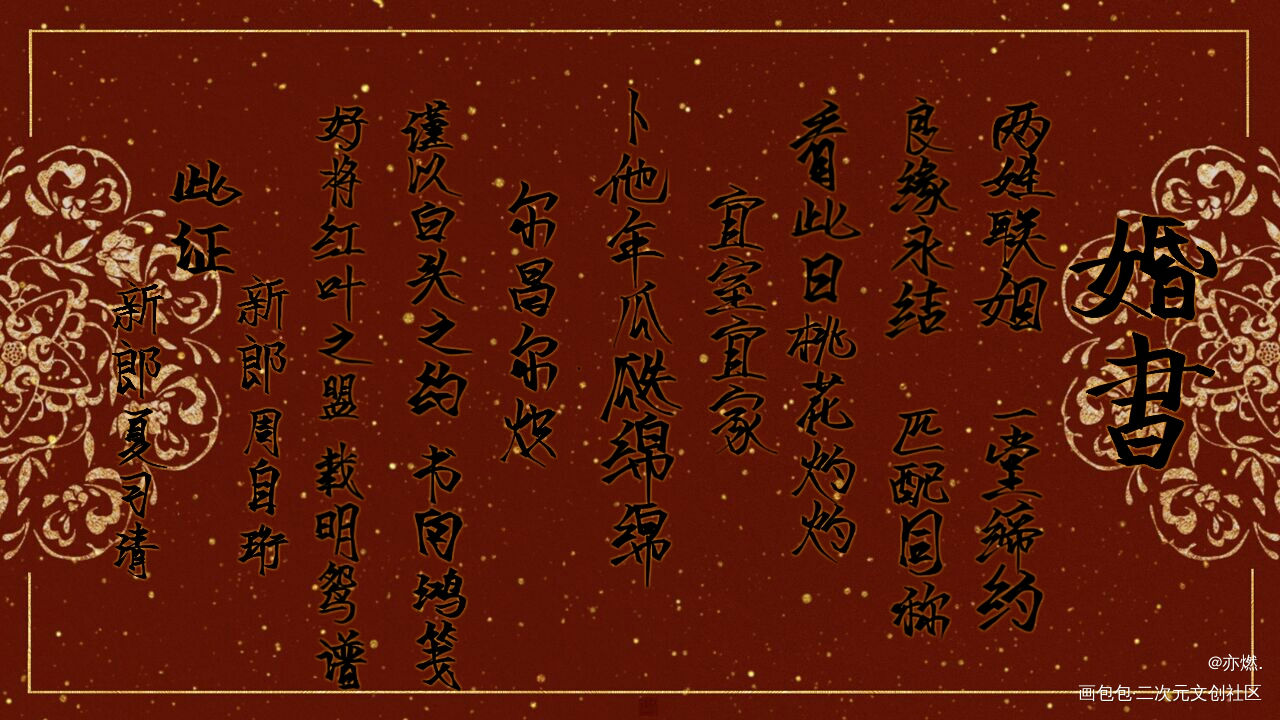 婚書
两姓联姻 一堂缔约
良缘永结 匹配同称
看此日桃花灼灼
宜室宜家
卜他年瓜瓞绵绵
尔昌尔炽
僅以白头之约 书向鸿笺
好将红叶之盟 载明鸳谱
此证
新郎周自珩
新郎夏习清
@亦燃.
画包包·二次元文创社区